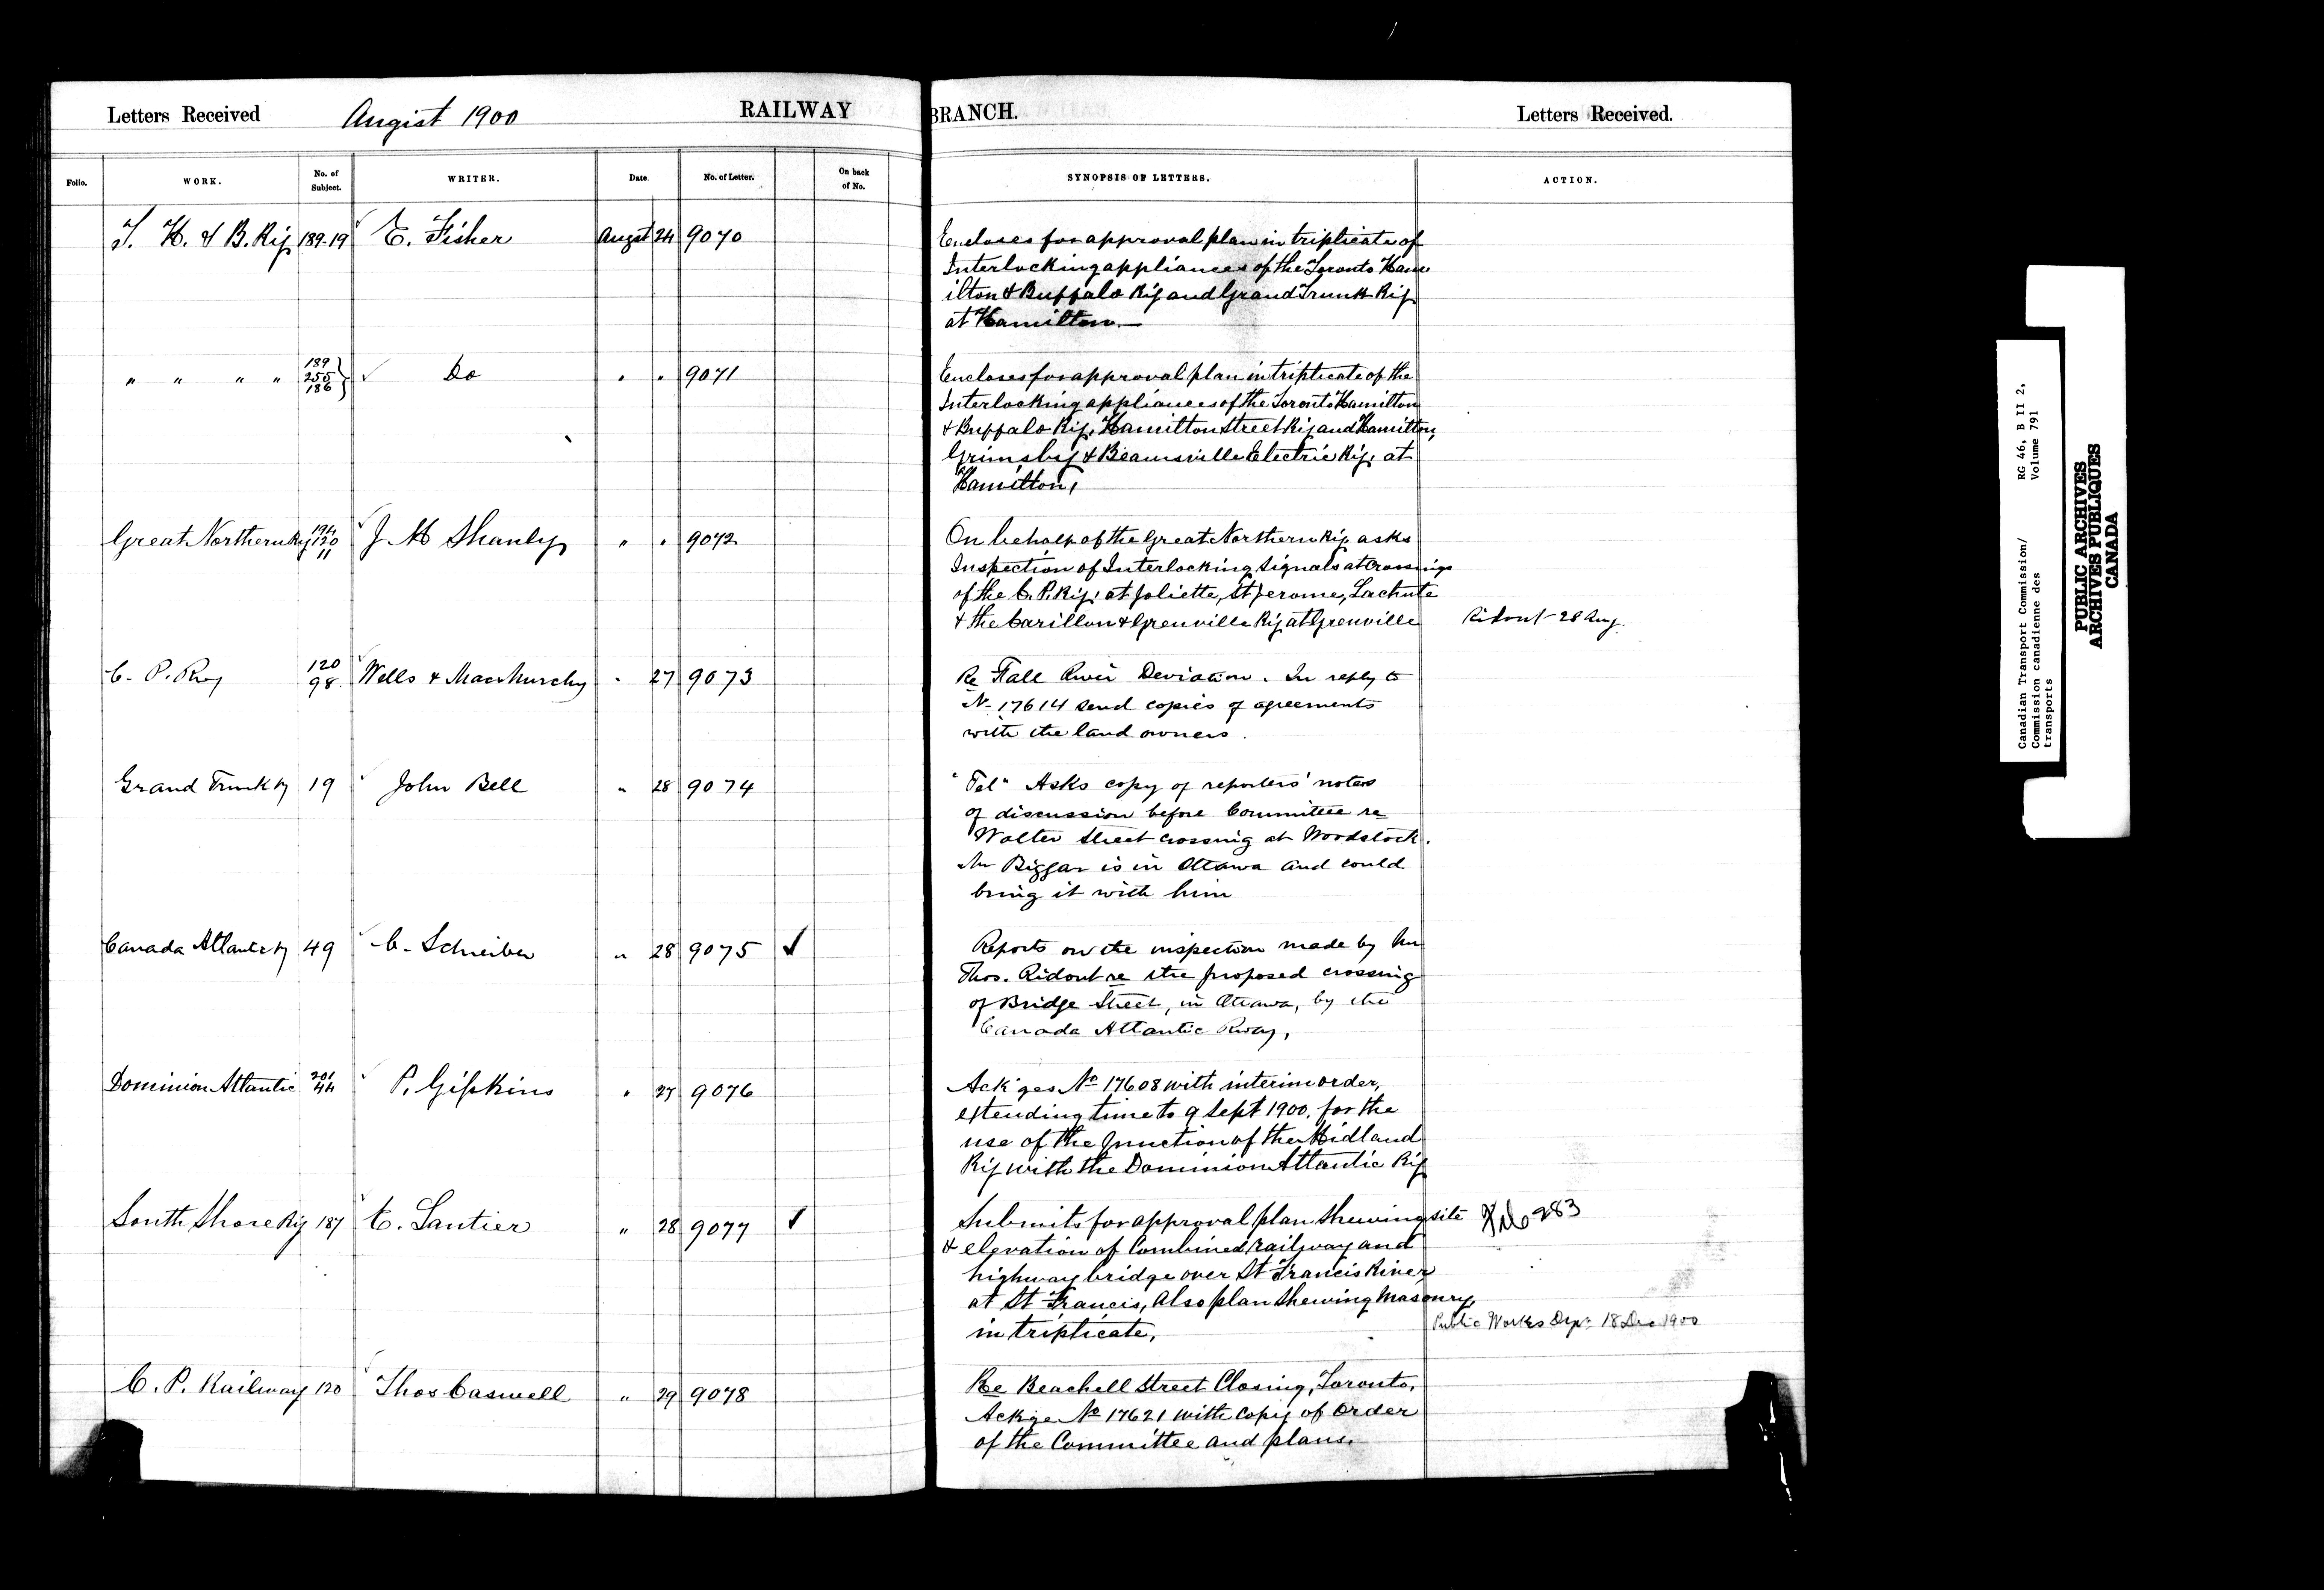 Letters Received August 1900 RAILWAY BRANCH. Letters Received.
Folio. WORK. No. of Subject. WRITER. Date. No. of Letter. On back of No. SYNOPSIS OF LETTERS. ACTION.
T. H. & B. Ry 189-19 E. Fisher Augst 24 9070
Encloses for approval plan in triplicate of
Interlocking appliances of the Toronto Ham
ilton & Buffalo Ry and Grand Trunk Ry
at Hamilton.—
" " " " 189 255 186 } Do " " 9071
Encloses for approval plan in triplicate of the
Interlocking appliances of the Toronto Hamilton
& Buffalo Ry, Hamilton Street Ry and Hamilton,
Grimsby & Beamsville Electric Ry, at
Hamilton,
Great Northern Ry 194 120 11 J M Shanly " " 9072
On behalf of the Great Northern Ry. asks
Inspection of Interlocking Signals at Crossings
of the C. P. Ry. at Joliette, St Jerome, Lachute
& the Carillon & Grenville Ry at Grenville Ridout - 28 Aug.
C. P. Rwy 120 98. Wells & MacMurchy " 27 9073
Re Fall River Deviation. In reply to
No 17614 send copies of agreements
with the land owners.
Grand Trunk Ry 19 John Bell " 28 9074
"Tel" Asks copy of reporters' notes
of discussion before Committee re
Walter Street crossing at Woodstock.
Mr Biggar is in Ottawa and could
bring it with him
Canada Atlantic Ry 49 C. Schreiber " 28 9075 ✓
Reports on the inspection made by Mr
Thos. Ridout re the proposed crossing
of Bridge Street, in Ottawa, by the
Canada Atlantic Rway,
Dominion Atlantic 201 44 P. Gifkins " 27 9076
Ack'ges No 17608 with interim order,
extending time to 9 Sept 1900, for the
use of the Junction of the Midland
Ry with the Dominion Atlantic Ry
South Shore Ry 187 C. Lantier " 28 9077 ✓
Submits for approval plan shewing site 983
& elevation of Combined railway and
highway bridge over St Francis River
at St Francis, Also plan shewing Masonry,
in triplicate, Public Works Dept 18 Dec 1900
C. P. Railway 120 Thos Caswell " 29 9078
Re Beachell Street Closing, Toronto,
Ackge No 17621 with copy of order
of the Committee and plans.
Canadian Transport Commission/ RG 46, B II 2,
Commission canadienne des Volume 791
transports
PUBLIC ARCHIVES
ARCHIVES PUBLIQUES
CANADA